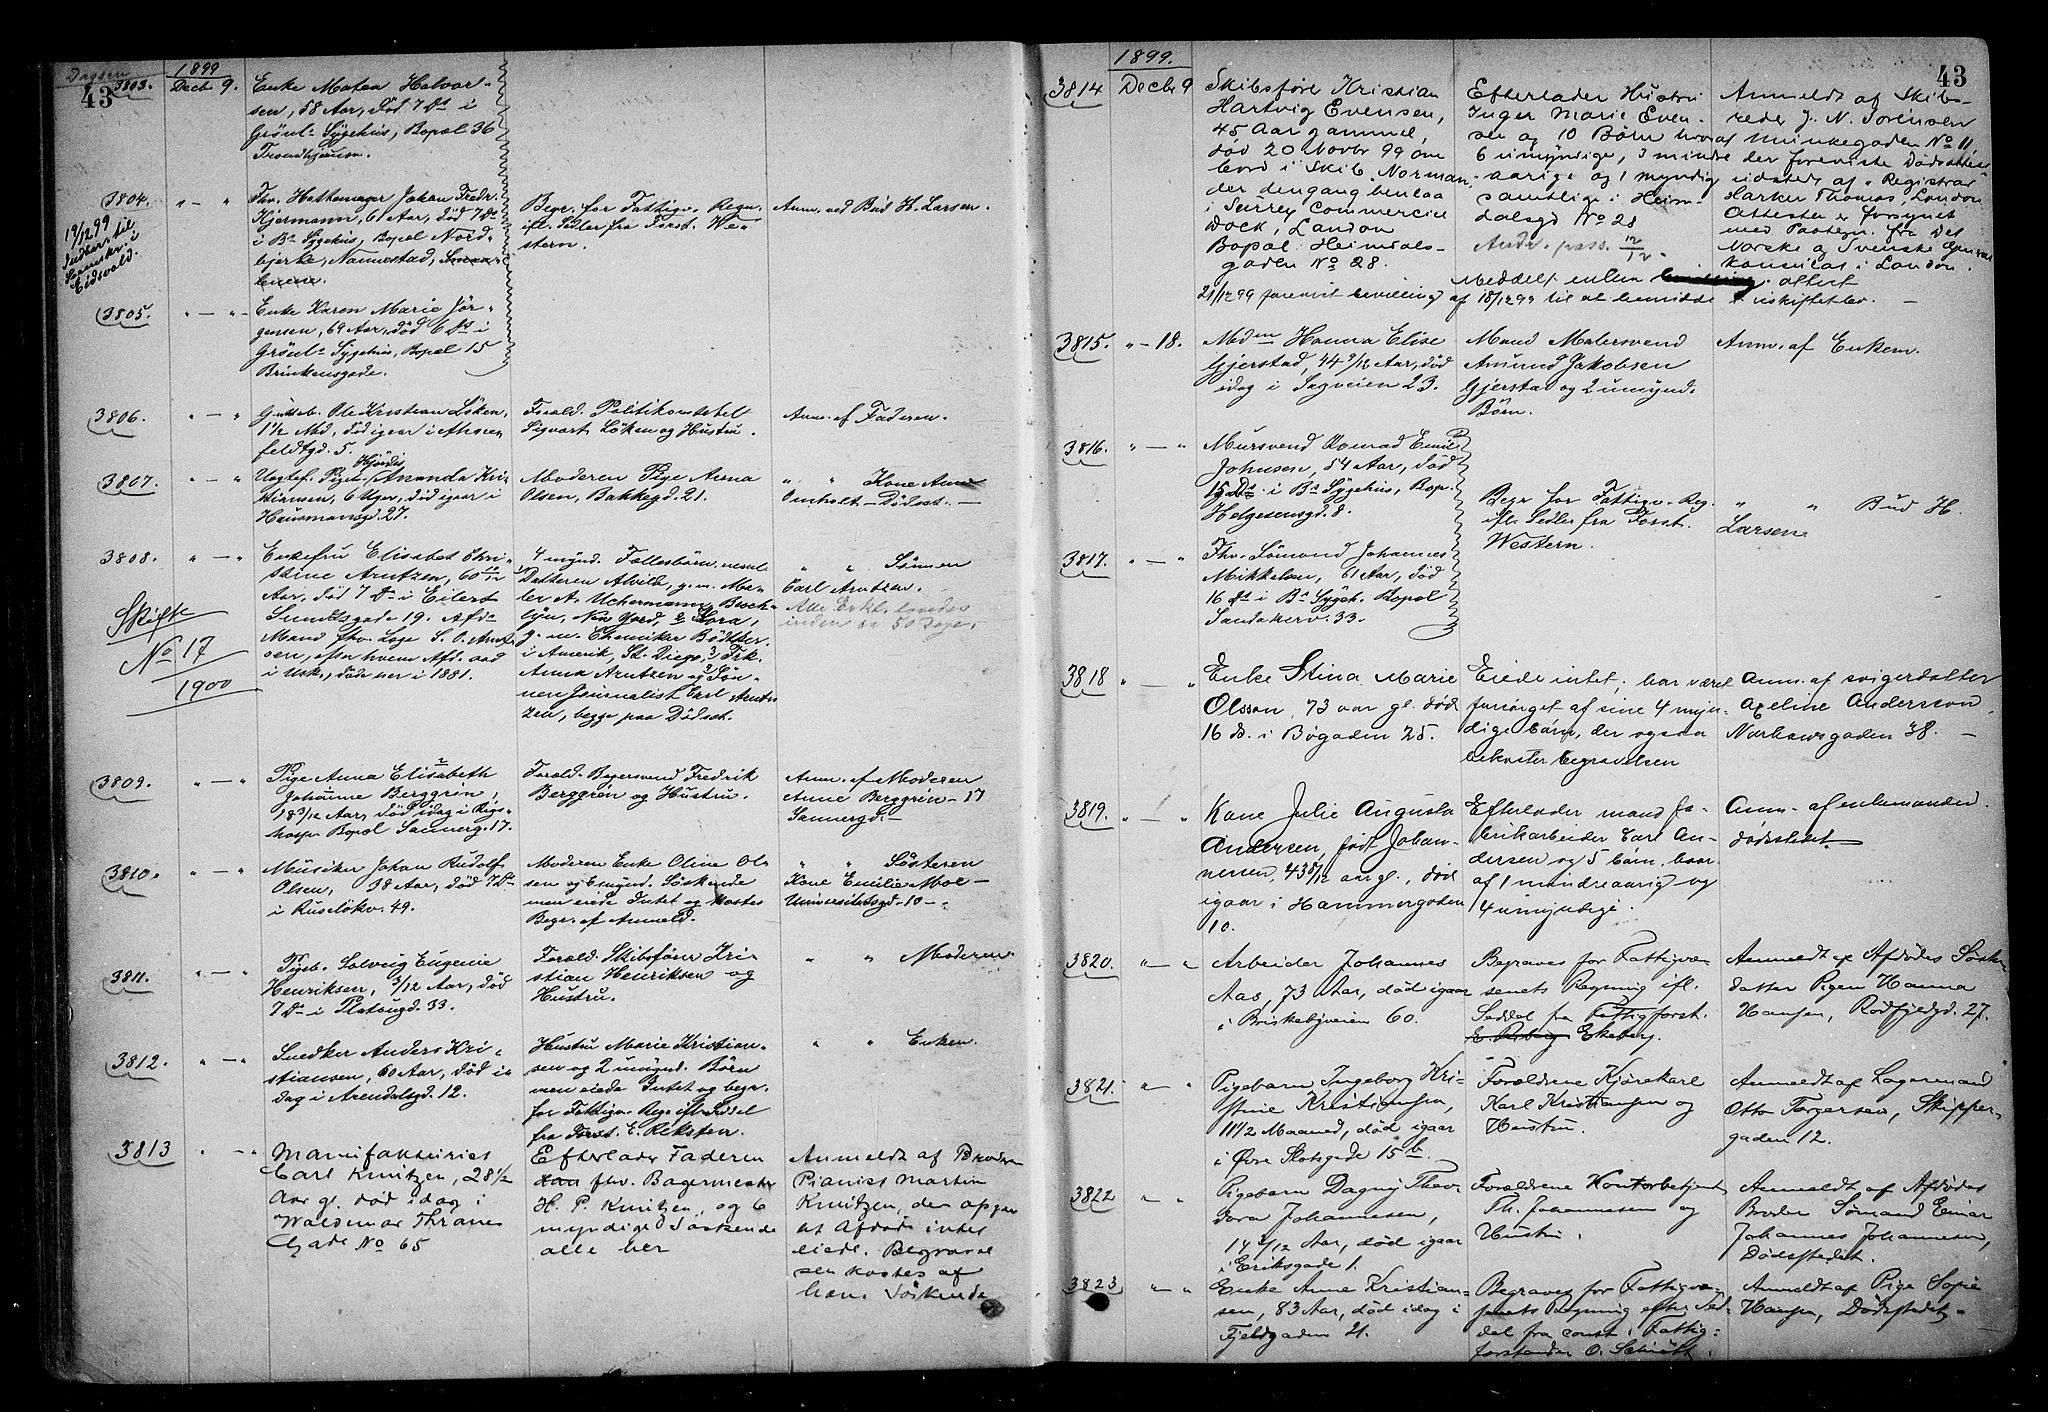 43
Dagsen
1899
3803. Decb. 9. Enke Maten Halvor-
sen, 58 Aar, død 7 Ds i
Grönl. Sygehus, Bopæl 36
Trondhjemsv.
3804. " — " Fhv. Hattemager Johan Fredr.
Kjermann, 61 Aar, død 7 Ds
i Bs Sygehus, Bopæl Nord-
bjerke, Nannestad,
Begr. for Fattigv. Regn.
ifl. Sedler fra Forst. We-
stern.
Anm. ved Bud H. Larsen.
19/12 99
Eidsvold.
3805. " — " Enke Karen Marie Jör-
gensen, 69 Aar, død 6 Ds i
Grönl. Sygehus, Bopæl 15
Brinkensgade.
3806. " — " Gutteb. Ole Kristian Löken,
1½ Md, död igaar i Ahlse-
feldtgd. 5.
Foræld. Politikonstabel
Sigvart Löken og Hustru.
Anm. af Faderen.
3807. " — " Uægtef. Pige Hjördis Amanda Kri-
stiansen, 6 Uger, död igaar i
Hausmansgd. 27.
Moderen Pige Anna
Olsen, Bakkegd. 21.
" " Kone Anne
Omholt — Dödsst. —
3808. " — " Enkefru Elisabet Chri-
stine Arntzen, 60 10/12
Aar, död 7 Ds i Eilert
Sundtsgade 19. Afd.
Mand fhv. Læge S. O. Arnt-
sen, efter hvem Afd. sad
i Usk., döde her i 1881.
4 mynd. Fællesbörn, nemlig
Datteren Alvild, g. m. Ma-
ler A. Uchermann, Bech-
lyn, New York, 2 Thora,
g. m. Chemiker Bödtker
i Amerik, St. Diego, 3 Frk.
Anna Arntzen og Sön-
nen Journalist Carl Arnt-
zen, begge paa Dödsst.
" " Sönnen
Carl Arntzen. —
Skifte
No 17
1900
3809. " — " Pige Anna Elisabeth
Johanne Berggrén,
18 3/12 Aar, död idag i Rigs-
hosp. Bopæl Sannerg. 17.
Foræld. Bagersvend Fredrik
Berggrén og Hustru.
Anm. af Moderen
Anne Berggrén — 17
Sannergd. —
3810. " — " Musiker Johan Rudolf
Olsen, 38 Aar, död 7 Ds
i Ruselökv. 49.
Moderen Enke Oline Ol-
sen og 2 mynd. Söskende
men eiede Intet og koster
Begr. af Anmeld.
" " Sösteren
Kone Emilie Moe —
Universitetsgd. 10 —.
3811. " — " Pigeb. Solveig Eugenie
Henriksen, 3/12 Aar, död
7 Ds i Platougd. 33.
Foræld. Skibsförer Kri-
stian Henriksen og
Hustru.
" " Moderen
3812. " — " Snedker Anders Kri-
stiansen, 60 Aar, död i-
dag i Arendalsgd. 12.
Hustru Marie Kristian-
sen og 2 umynd. Börn
men eiede Intet og begr.
for Fattigv. Regn. ifl. Seddel
fra Forst. E. Reksten.
" " Enken.
3813 " — " Manufakturist
Carl Knutzen, 28½
Aar gl. död idag i
Waldemar Thranes
Gade No 65
Efterlader Faderen
fhv. Bagermester
H. P. Knutzen, og 6
myndige Söskende
alle her
Anmeldt af Broderen
Pianist Martin
Knutzen, der opgav
at Afdöde intet
eiede. Begravel
sen kostes af
hans Söskende
1899.
43
3814 Decb. 9 Skibsförer Kristian
Hartvig Evensen,
45 Aar gammel,
död 20 Novbr 99 om
bord i Skib. Norman,
der dengang henlaa
i Surrey Commercial
Dock, London
Bopæl: Heimdals-
gaden No 28.
Efterlader Hustru
Inger Marie Even-
sen og 10 Börn hvoraf
6 umyndige, 3 mindre
aarige og 1 myndig
samtlige i Heim-
dalsgd No 28
Andr. pass. 12/12.
Anmeldt af Skibs-
reder J. N. Sörensen
Munkegaden No 11,
der foreviste Dödsattest
udstedt af "Registrar"
Harker Thomas, London
Attesten er forsynet
med Paategn. fra Det
Norske og Svenske General
konsulat i London.
Meddelt enken attest
21/12 99 forevist bevilling af 18/12 99 til at hensidde i uskiftet bo. —
3815. " — 18. Madmen Hanna Elise
Gjerstad, 44 9/12 Aar, död
idag i Sagveien 23.
Mand Malersvend
Amund Jakobsen
Gjerstad og 2 umynd.
Börn.
Anm. af Enkem.
3816. " — " Mursvend Konrad Emil
Johnsen, 54 Aar, död
15 Ds i Bs Sygehus, Bop.
Helgesensgd. 8.
Begr. for Fattigv. Reg.
ifl. Sedler fra Forst.
Western.
" " Bud H.
Larsen
3817. " — " Fhv. Sömand Johannes
Mikkelsen, 61 Aar, död
16 ds i Bs Sygeh. Bopæl
Sandakerv. 33.
3818 " — " Enke Stina Marie
Olsson, 73 aar gl. död
16 ds. i Bögaden 25.
Eiede intet; har været
forsörget af sine 4 myn-
dige börn, der ogsaa
bekoster begravelsen
Anm. af svigerdatter
Axeline Andersson,
Norbævsgaden 38. —
3819. " — " Kone Julie Augusta
Andersen, födt Johan-
nesen, 43 8/12 aar gl., död
igaar i Hammergaden
10.
Efterlader mand fa-
brikarbeider Carl An-
dersen og 5 börn, hvor
af 1 mindreaarig og
4 umyndige.
Anm. af enkemanden
dödsstedet.
3820. " — " Arbeider Johannes
Aas, 73 Aar, död igaar
i Briskebyveien 60.
Begraves for Fattigvæ-
senets Regning ifl.
Seddel fra Fattigforst.
Ekeberg.
Anmeldt af Afdödes Söster
datter Pigen Hanna
Hansen, Rödfyldgd. 27.
3821. " — " Pigebarn Ingeborg Kri-
stine Kristiansen,
11½ Maaned, död igaar
i Övre Slotsgade 15 b.
Forældrene Kjörekarl
Karl Kristiansen og
Hustru.
Anmeldt af Lagermand
Otto Torgersen, Skipper-
gaden 12.
3822 " — " Pigebarn Dagny Theo-
dora Johannesen,
14 3/12 Aar, död igaar
i Eriksgade 1.
Forældrene Kontorbetjent
Th. Johannesen og
Hustru.
Anmeldt af Afdödes
Broder Sömand Einar
Johannes Johannesen,
Dödsstedet.
3823 " — " Enke Anne Kristian-
sen, 83 Aar, död idag i
Fjeldgaden 21.
Begraves for Fattigvæ-
senets Regning efter Sed-
del fra const. Fattig-
forstander O. Schiött.
Anmeldt af Pige Sofie
Hansen, Dödsstedet.